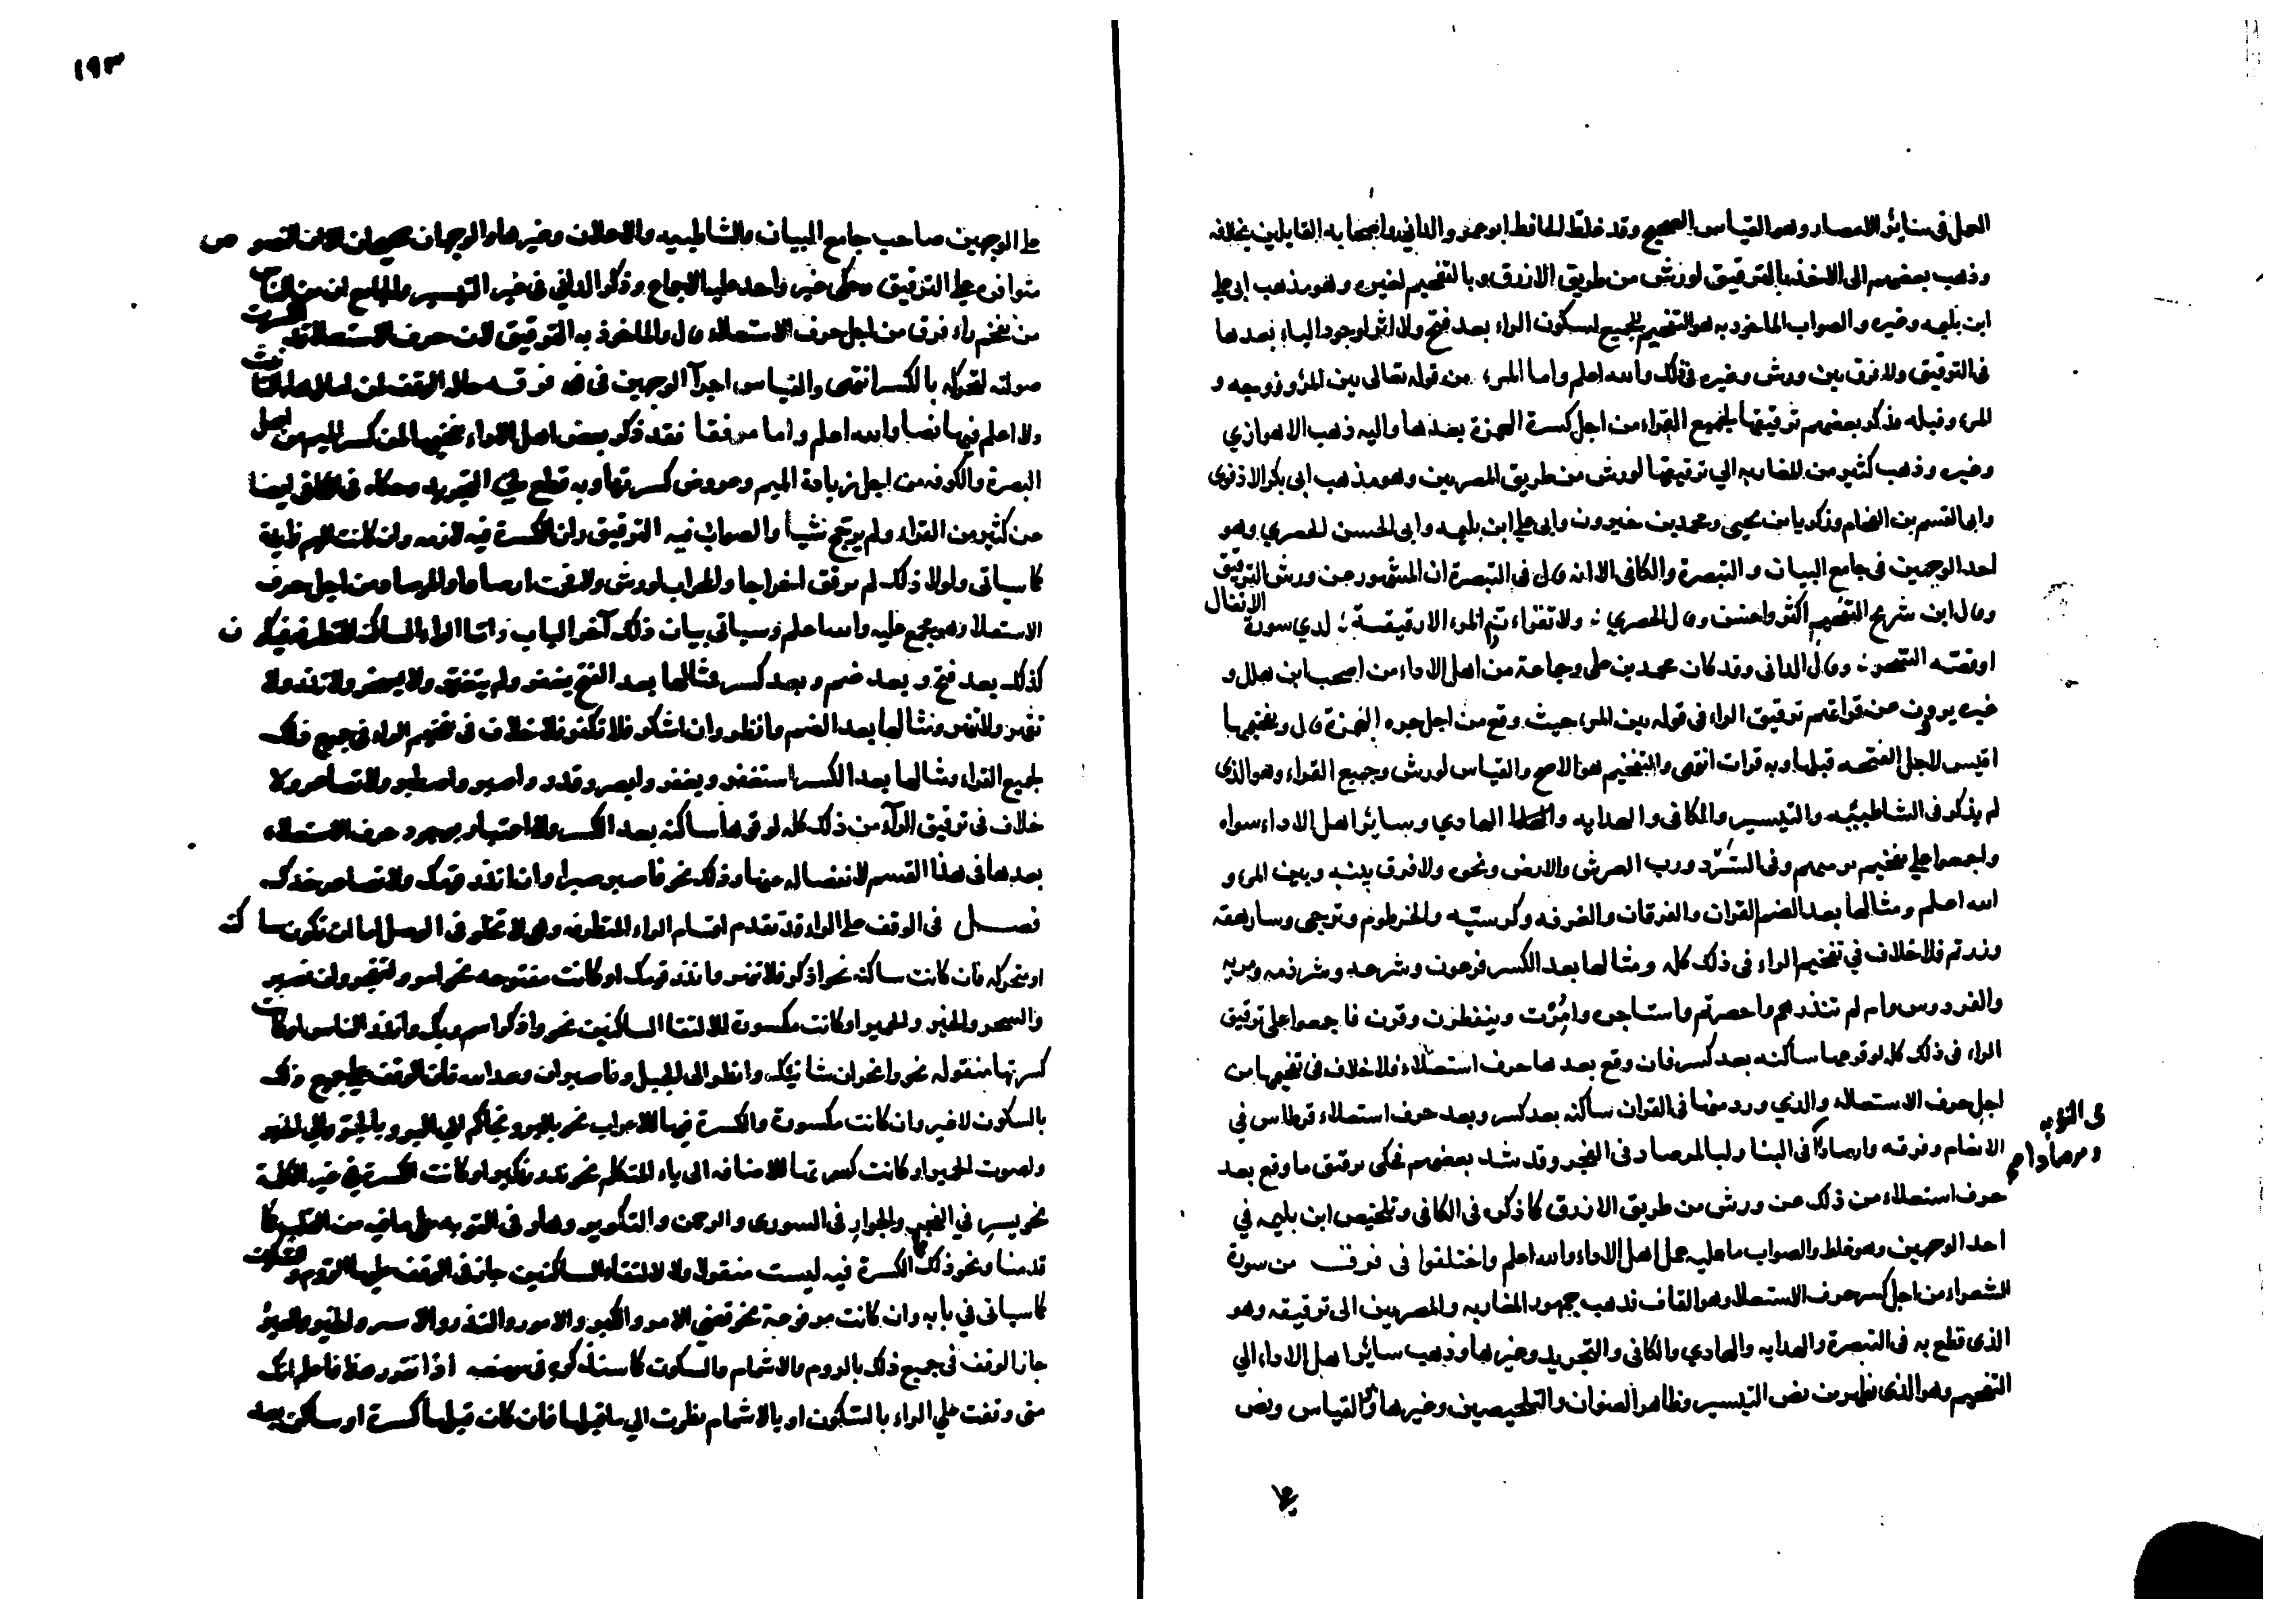 العمل في سائر الامصار وهو القياس الصحيح وقد غلط الحافظ ابو عمرو الداني واصحابه القايلين بخلافه
وذهب بعضهم الى الاخذ بالترقيق لورش من طريق الازرق وبالتفخيم لغيره وهو مذهب ابي علي
ابن بليمه وغيره والصواب الماخوذ به هو التفخيم للجميع لسكون الراء بعد فتح ولا اثر لوجود الياء بعدها
في الترقيق ولا فرق بين ورش وغيره في ذلك والله اعلم واما المرء من قوله تعالى بين المرء وزوجه و
المرء وقبله فذكر بعضهم ترقيقها لجميع القراء من اجل كسرة الهمزة بعدها واليه ذهب الاهوازي
وغيره وذهب كثير من المغاربه الي ترقيقها لورش من طريق المصريين وهو مذهب ابي بكر الاذفوى
وابي القسم بن الفحام وزكريا بن يحيى ومحمد بن خيرون وابي علي ابن بليمه وابي الحسن الحصري وهو
احد الوجهين في جامع البيان والتبصرة والكافي الا انه قال في التبصرة ان المشهور عن ورش الترقيق
وقال ابن شريح التفخيم اكثر واحسن وقال الحصري ؛ ولا تقراء تم المرء الا رقيقة ؛ لدي سورة الانفال
او قصه السحر ؛ وقال الداني وقد كان محمد بن علي وجماعة من اهل الاداء من اصحاب ابن هلال و
غيره يروون عن قراتهم ترقيق الراء في قوله بين المرء حيث وقع من اجل جره الهمزة قال وتفخيمها
اقيس لاجل الفتحه قبلها وبه قرات انتهى والتفخيم هو الاصح والقياس لورش وجميع القراء وهو الذي
لم يذكر في الشاطبيه والتيسير والكافي والهدايه والهادي وسائر اهل الاداء سواه
واجمعوا علي تفخيم ترميهم وفي السرد ورب العرش والارض ونحوه ولا فرق بينه وبين المرء و
الله اعلم ومثالها بعد الضم القران والفرقان والغرفه وكرسيه والخرطوم وترجي وسارهقه
وزرتم فلا خلاف في تفخيم الراء في ذلك كله ومثالها بعد الكسر فرعون وشرعه وشرذمه ومريه
والفردوس وام لم تنذرهم واحصرتم واستاجره وامرت وينفطرن وقرن فاجمعوا علي ترقيق
الراء في ذلك كله لوقوعها ساكنه بعد كسر فان وقع بعدها حرف استعلاء فلا خلاف في تفخيمها من
اجل حرف الاستعلاء والذي ورد منها في القران ساكنه بعد كسر وبعد حرف استعلاء قرطاس في
الانعام وفرقه وارصادا في النبا ولبالمرصاد في الفجر وقد شذ بعضهم فحكى ترقيق ما وقع بعد
في التوبه
ومرصادا صح
حرف استعلاء من ذلك عن ورش من طريق الازرق كما ذكره في الكافي وتلخيص ابن بليمه في
احد الوجهين وهو غلط والصواب ما عليه عمل اهل الاداء والله اعلم واختلفوا في فرق من سورة
الشعراء من اجل كسر حرف الاستعلا وهو القاف فذهب جمهور المغاربه والمصريين الى ترقيقه وهو
الذي قطع به في التبصرة والهدايه والهادي والكافي والتجريد وغيرها وذهب سائر اهل الاداء الي
التفخيم وهو الذي يظهر من نص التيسير وظاهر العنوان والتلخيصين وغيرها والقياس ونص
١٩٣
على الوجهين صاحب جامع البيان والشاطبيه والاعلان وغيرها والوجهان صحيحان الا ان النصوص
متواتره علي الترقيق وحكى غير واحد عليه الاجماع وذكر الداني في غير التيسير والجامع ان من الناس
من يفخم راء فرق من اجل حرف الاستعلاء قال والماخوذ به الترقيق لان حرف الاستعلاء قد انكسرت
صولته لتحركه بالكسر انتهى والقياس اجرآ الوجهين في فرقه حاله الوقف لمن امال هاء التانيث
ولا اعلم فيها نصا والله اعلم واما مرفقا فقد ذكر بعض اهل الاداء تفخيمها لمن كسر الميم من اهل
البصرة والكوفه من اجل زيادة الميم وعروض كسرتها وبه قطع في التجريد وحكاه في الكافي ايضا
عن كثير من القراء ولم يرجح شيأ والصواب فيه الترقيق وان الكسرة فيه لازمه وان كانت الميم زايدة
كما سياتي ولولا ذلك لم يرقق اخراجا والمحراب لورش ولا فخمت ارصادا والمرصاد من اجل حرف
الاستعلا وهو مجمع عليه والله اعلم وسياتي بيان ذلك آخر الباب واما الراء الساكنه المتطرفه فتكون
كذلك بعد فتح وبعد ضم وبعد كسر مثالها بعد الفتح يغفر ولم يتغير ولا يسخر ولا تذر ولا
تقهر ولا تنهر ومثالها بعد الضم فانظر وان اشكر فلا تكفر فلا خلاف في تفخيم الراء في جميع ذلك
لجميع القراء ومثالها بعد الكسر استغفر ويغفر وابصر وقدر واصبر واصطبر ولا تصاعر ولا
خلاف في ترقيق الرآء من ذلك كله لوقوعها ساكنه بعد الكسر ولا اعتبار بوجود حرف الاستعلاء
بعدها في هذا القسم لانفصاله عنها وذلك نحو فاصبر صبرا وان انذر قومك ولا تصاعر خدك
فصل في الوقف علي الراء قد تقدم اقسام الراء المتطرفه وهي لا تخلو في الوصل اما ان تكون ساكنه
او متحركه فان كانت ساكنه نحو اذكر فلا تنهر وانذر قومك او كانت مفتوحه نحو امر وليفجر ولن نصبر
والسحر والخير والحمير او كانت مكسورة لالتقا الساكنين نحو واذكر اسم ربك وانذر الناس او كانت
كسرتها منقوله نحو وانحر ان شانئك وانظر الى الجبل وفاصبر ان وعد الله فان الوقف علي جميع ذلك
بالسكون لا غير وان كانت مكسورة والكسرة فيها للاعراب نحو بالبر ونجاكم الي البر وبالحر والي الخير
ولصوت الحمير او كانت كسرتها للاضافه الي ياء المتكلم نحو نذر ونكير او كانت الكسرة في عين الكلمة
نحو يسر في الفجر والجوار في الشورى والرحمن والتكوير وهار في التوبه علي ما فيه من القلب كما
قدمنا ونحو ذلك الكسرة فيه ليست منقولة ولا لالتقاء الساكنين جاز في الوقف عليها الروم والسكون
كما سياتي في بابه وان كانت مرفوعة نحو قضي الامر والكبر والامور والنذر والاسر والخير والعير
جاز الوقف في جميع ذلك بالروم والاشمام والسكون كما سنذكره في موضعه اذا تقرر هذا فاعلم انك
متى وقفت علي الراء بالسكون او بالاشمام نظرت الي ما قبلها فان كان قبلها كسرة او ساكن بعد